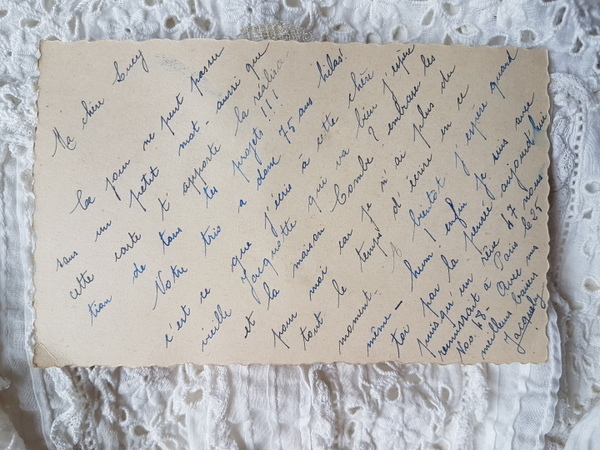 Ma chère Lucy
Ce jour ne peut passer
sans un petit mot - aussi que
cette carte t'apporte la réalisa
tion de tous tes projets !!!
Notre trio a dans 75 ans hélas!
c'est ce que j'écris à cette chère
vieille Jacquotte qui va bien j'espère
et la maison Combe ? embrasse les
pour moi car je n'ai plus du
tout le temps d'écrire en ce
moment. A bientôt j'espère quand
même - hum ! enfin je suis avec
toi par la pensée aujourd'hui
puisqu'un rêve 47 nous
réunissait à Paris le 25
Nov. 48. Avec mes
meilleurs baisers
Jacquely